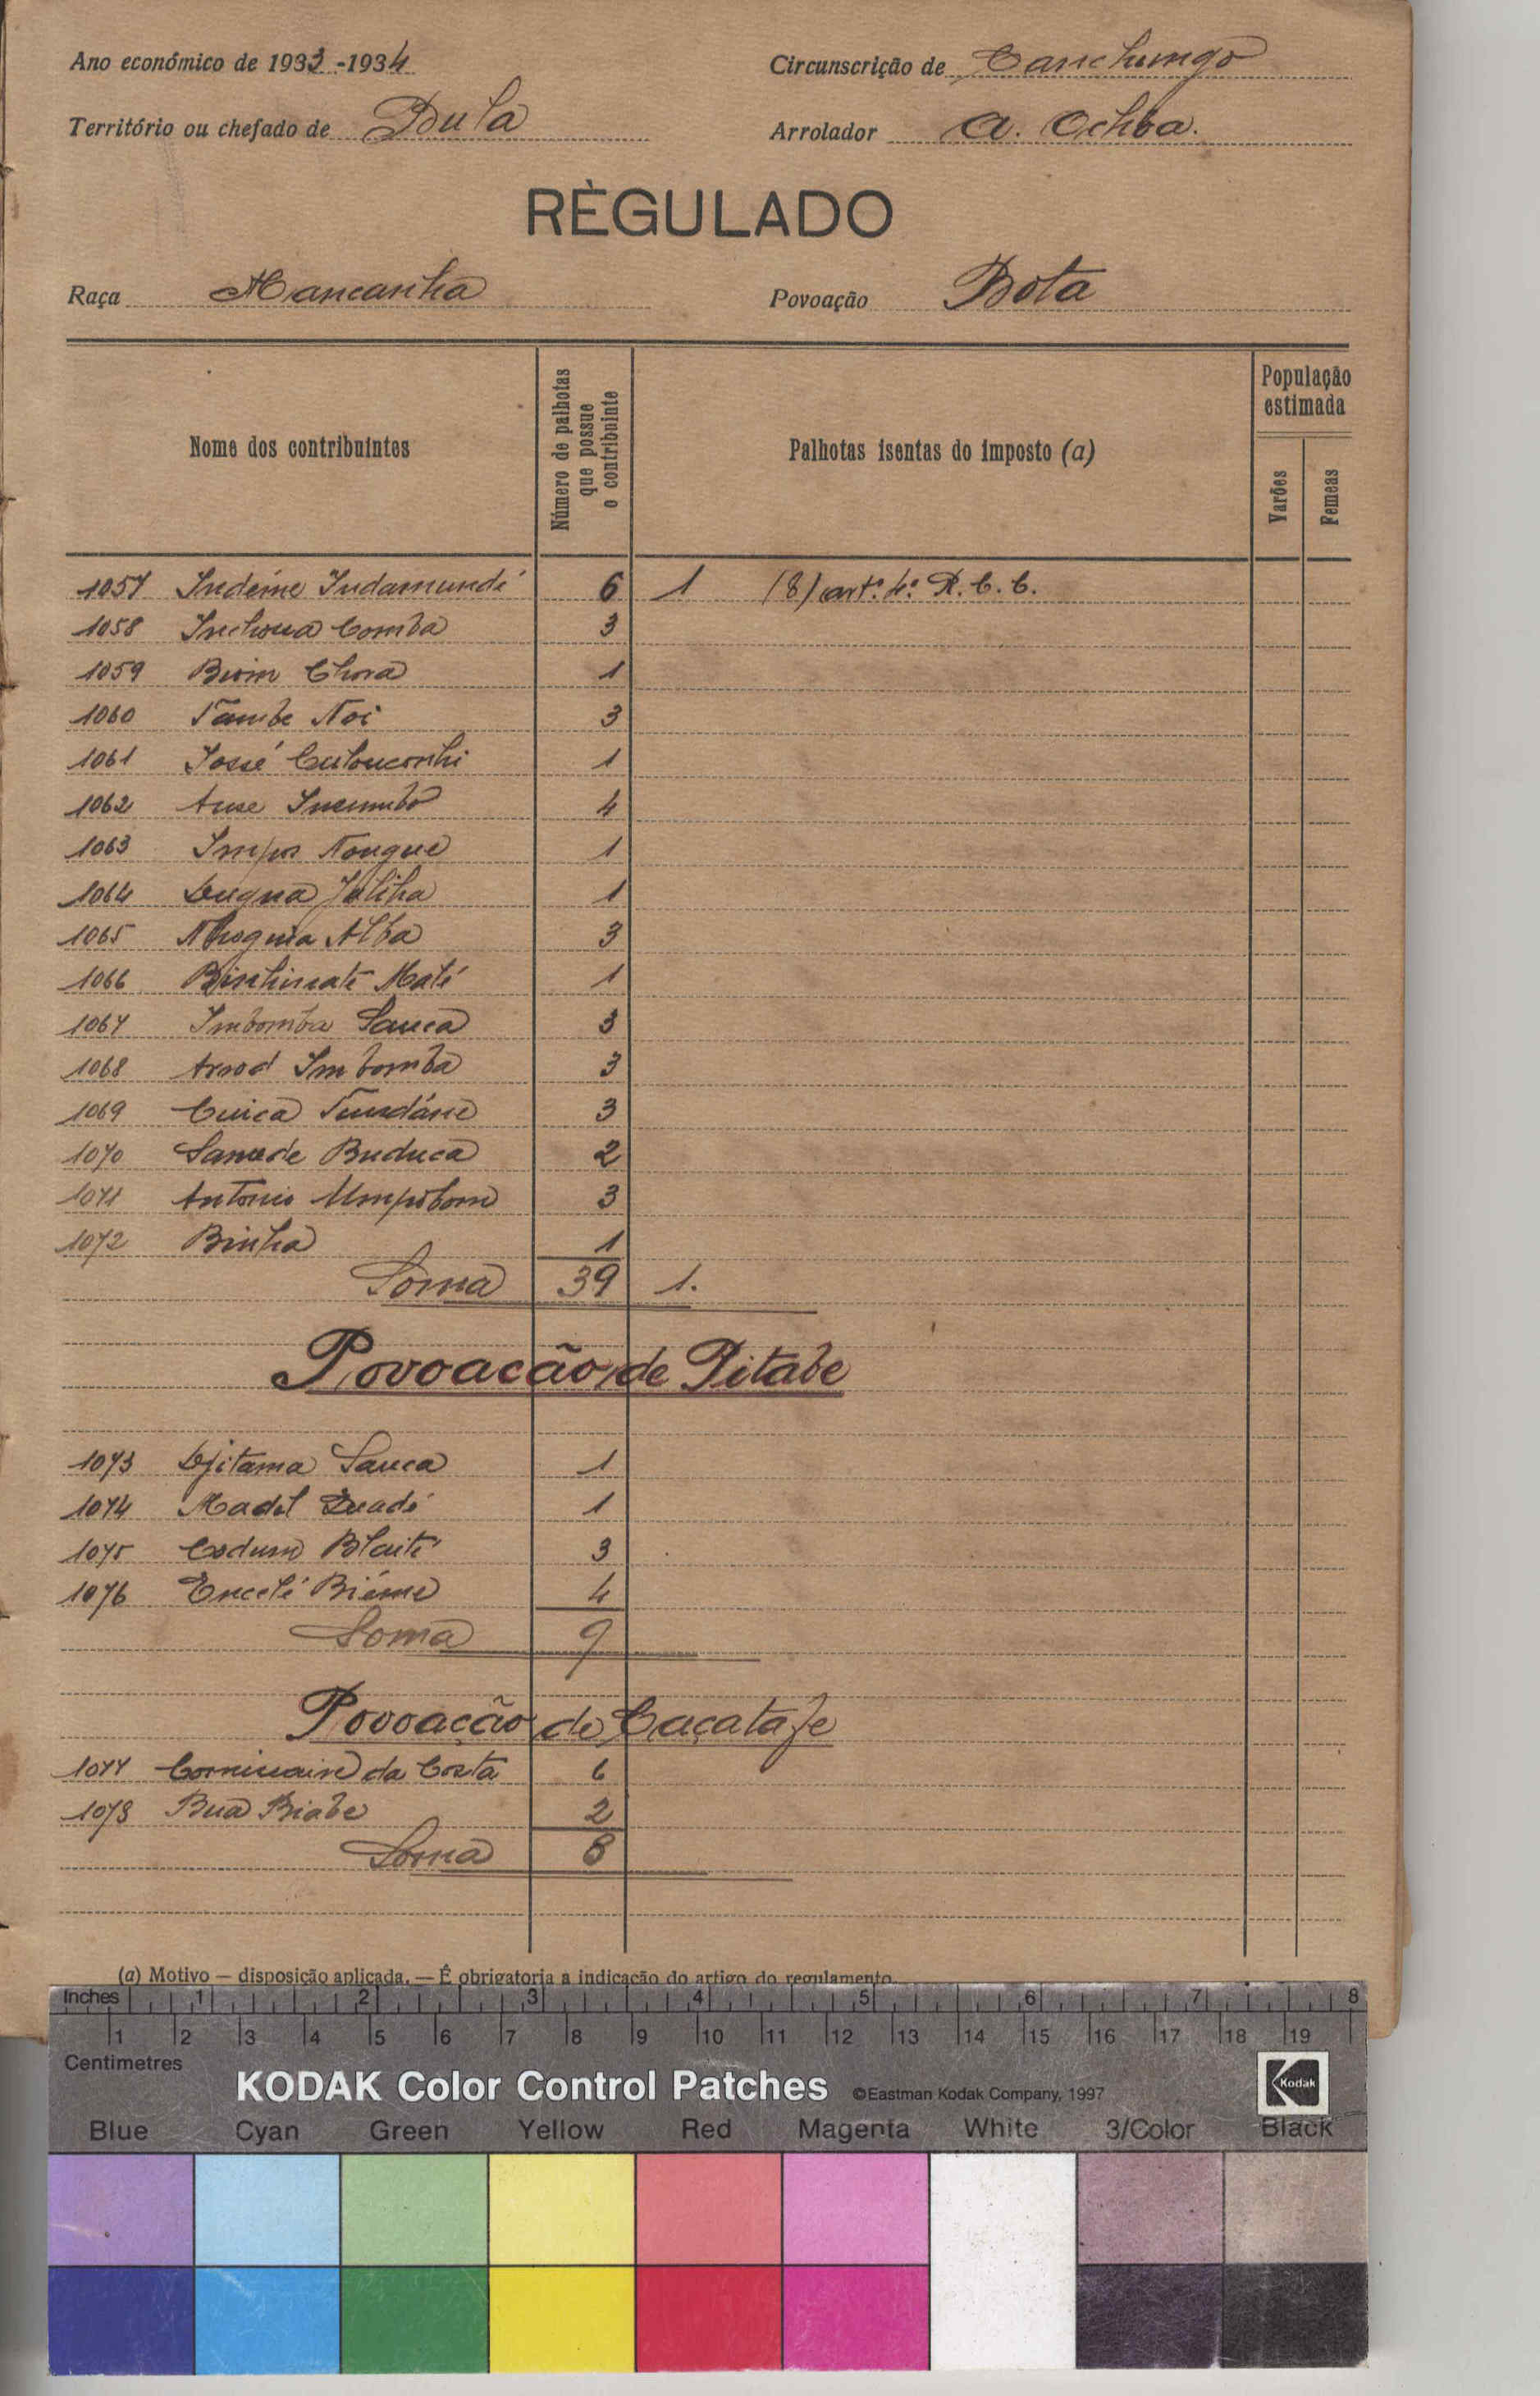 Ano económico de 1933-1934
Circunscrição de Canchungo
Território ou chefado de Bula
Arrolador A. Ochôa.
RÈGULADO
Raça Mancanha
Povoação Bota
Nome dos contribuintes
Número de palhotas que possue o contribuinte
Palhotas isentas do imposto (a)
População estimada
Varões
Femeas
1057 Indeine Indamundé 6 1 (8) artº. 4º. R. C. C.
1058 Inchoua Comba 3
1059 Bioin Chora 1
1060 Tambe Noi 3
1061 José 1
1062 4
1063 Nongue 1
1064 1
1065 3
1066 Maté 1
1067 Imbomba Sanca 3
1068 Imbomba 3
1069 Cuica 3
1070 Buduca 2
1071 Antonio 3
1072 Binha 1
Soma 39 1.
Povoacão de Pitabe
1073 Djitama Sanca 1
1074 Madel Quadé 1
1075 Codum Blaité 3
1076 Encelé Biéme 4
Soma 9
Povoacção de Caçatafe
1077 da Costa 6
1078 Bua Biabe 2
Soma 8
(a) Motivo — disposição aplicada. — É obrigatoria a indicação do artigo do regulamento.
Inches 1 2 3 4 5 6 7 8
1 2 3 4 5 6 7 8 9 10 11 12 13 14 15 16 17 18 19
Centimetres
KODAK Color Control Patches ©Eastman Kodak Company, 1997 Kodak
Blue Cyan Green Yellow Red Magenta White 3/Color Black